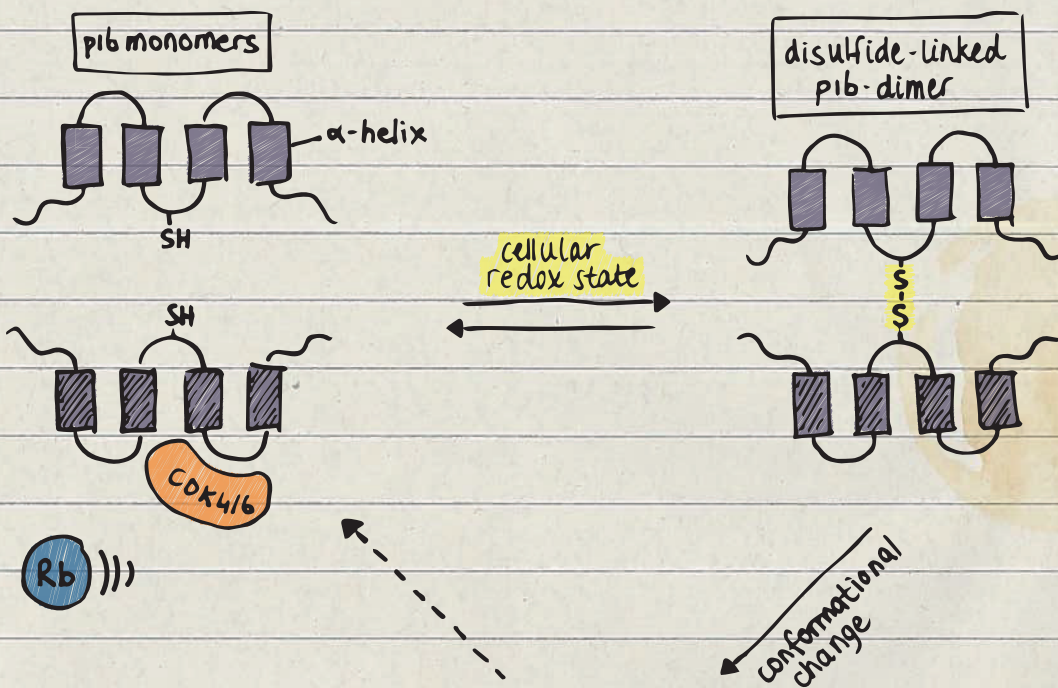 p16 monomers
α-helix
SH
SH
CDK4/6
Rb
cellular
redox state
disulfide-linked
p16-dimer
S
S
conformational
change